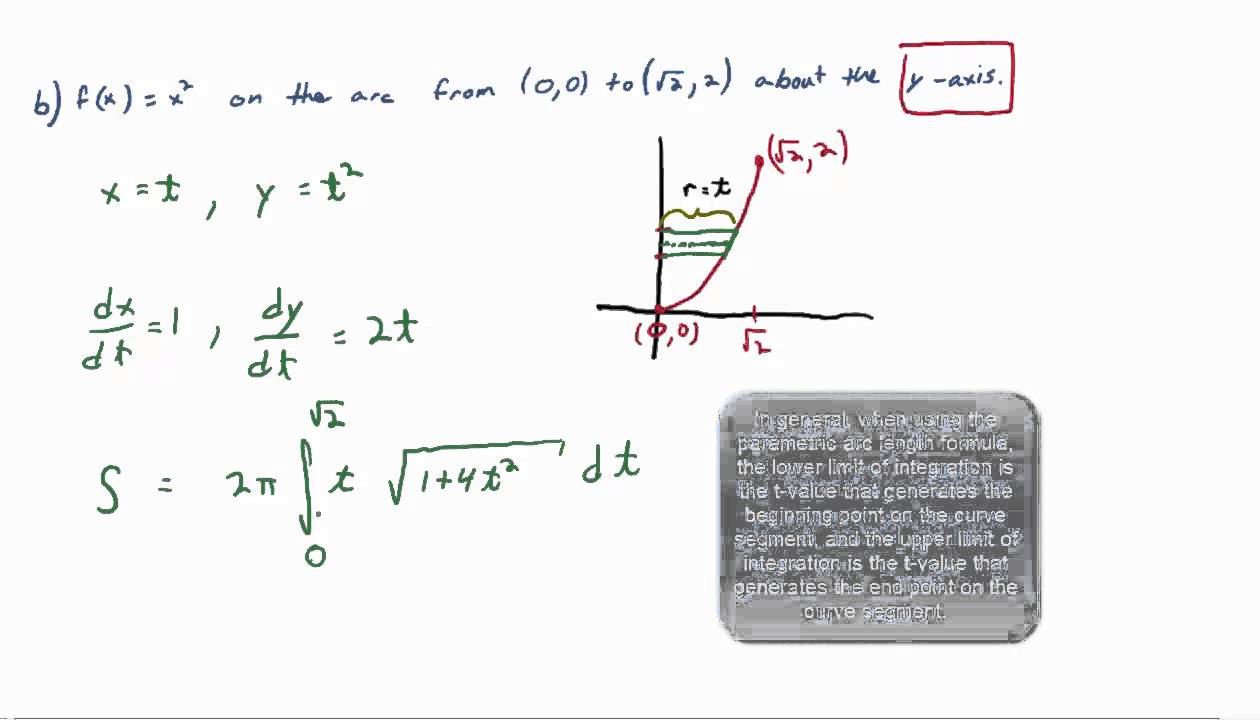 b) f(x) = x² on the arc from (0,0) to (√2, 2) about the y-axis.
x = t , y = t²
r = t
(√2, 2)
(0,0)
√2
dx/dt = 1 , dy/dt = 2t
S = 2π ∫₀^√2 t √(1+4t²) dt
In general, when using the
parametric arc length formula,
the lower limit of integration is
the t-value that generates the
beginning point on the curve
segment, and the upper limit of
integration is the t-value that
generates the end point on the
curve segment.